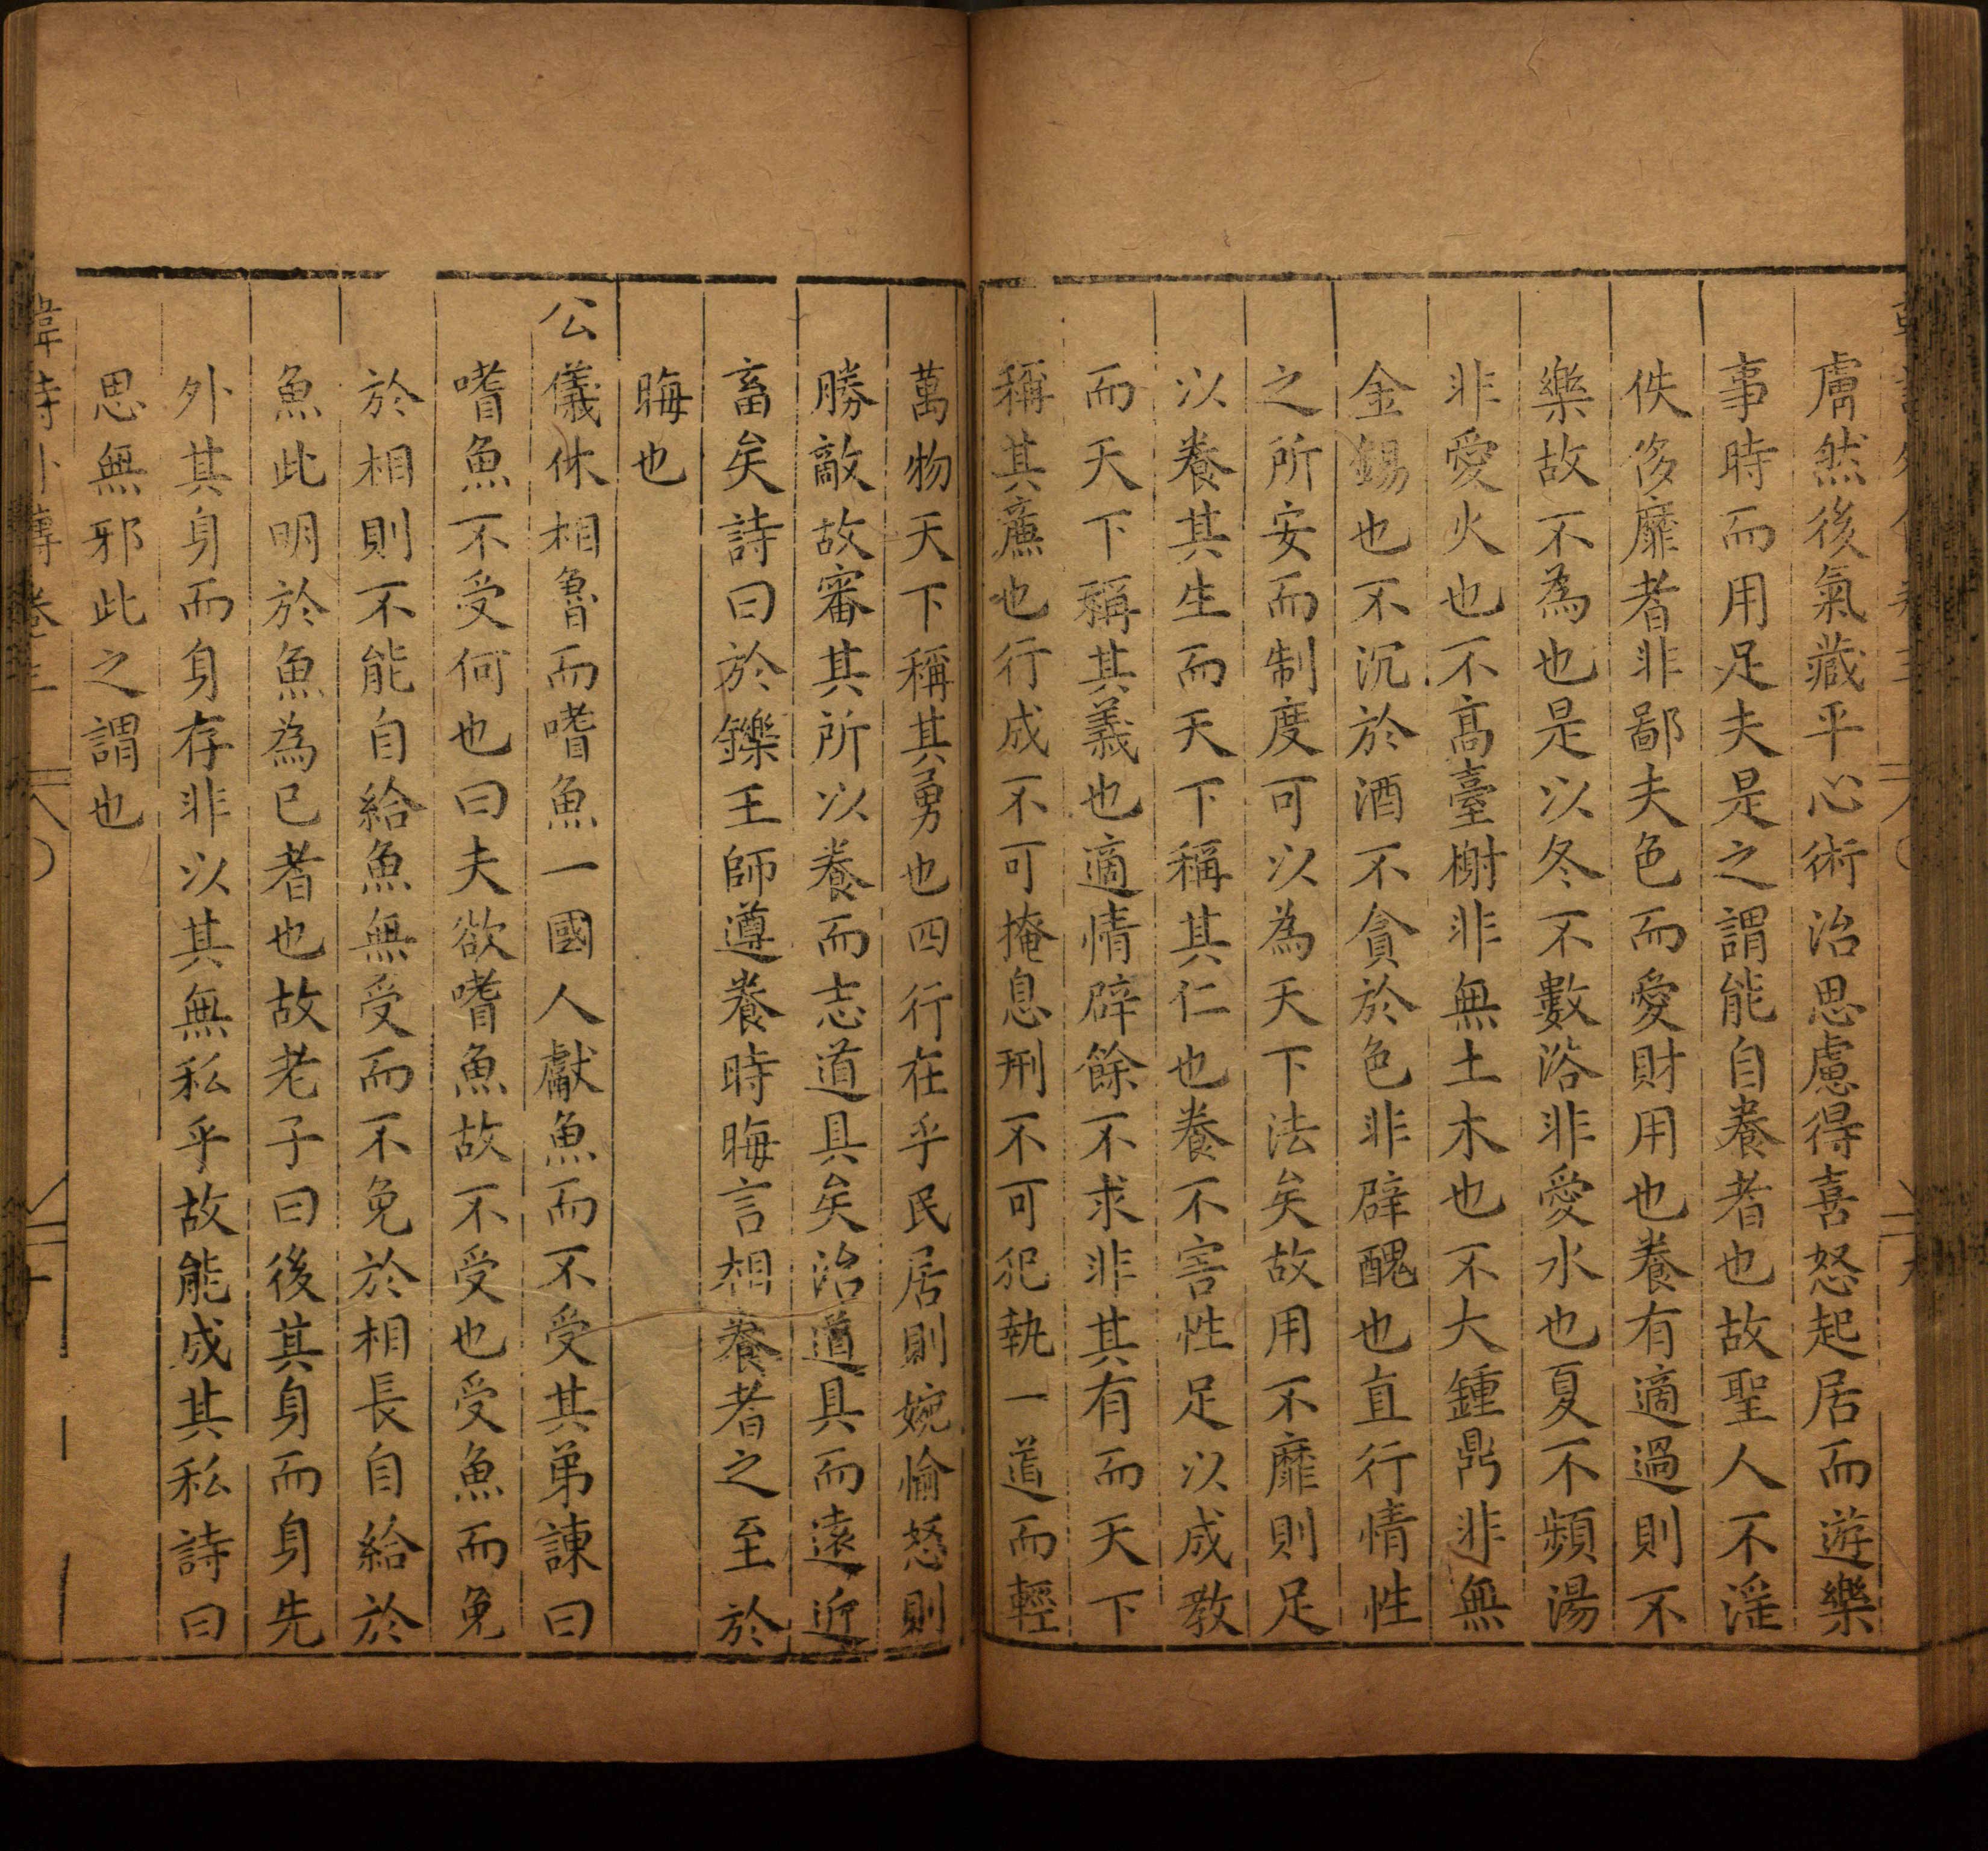 膚然後氣藏平心術治思慮得喜怒起居而遊樂
事時而用足夫是之謂能自養者也故聖人不淫
佚侈靡者非鄙夫色而愛財用也養有適過則不
樂故不為也是以冬不數浴非愛水也夏不頻湯
非愛火也不高臺榭非無土木也不大鍾鼎非無
金錫也不沉於酒不貪於色非辟醜也直行情性
之所安而制度可以為天下法矣故用不靡則足
以養其生而天下稱其仁也養不害性足以成教
而天下稱其義也適情辟餘不求非其有而天下
稱其廉也行成不可掩息刑不可犯執一道而輕
萬物天下稱其勇也四行在乎民居則婉愉怒則
勝敵故審其所以養而志道具矣治道具而遠近
畜矣詩曰於鑠王師遵養時晦言相養者之至於
晦也
公儀休相魯而嗜魚一國人獻魚而不受其弟諫曰
嗜魚不受何也曰夫欲嗜魚故不受也受魚而免
於相則不能自給魚無受而不免於相長自給於
魚此明於魚為已者也故老子曰後其身而身先
外其身而身存非以其無私乎故能成其私詩曰
思無邪此之謂也